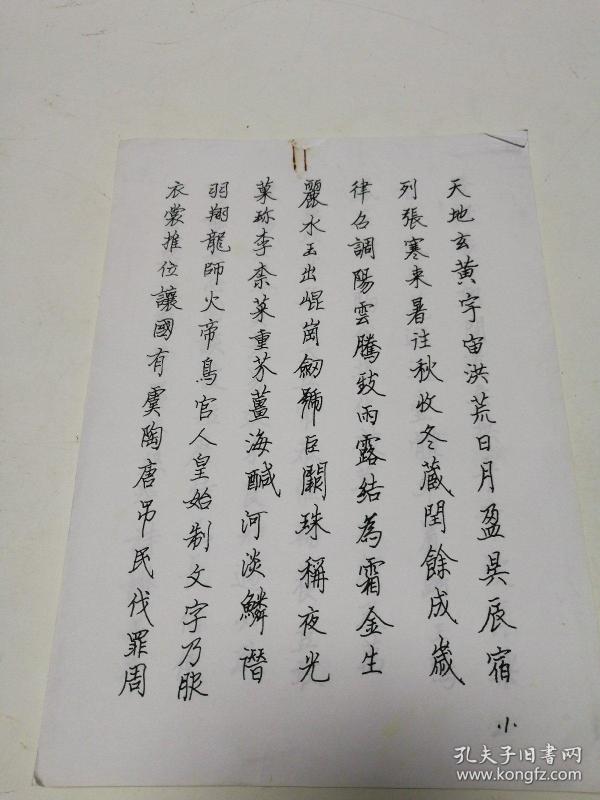 天地玄黃宇宙洪荒日月盈昃辰宿
列張寒来暑往秋收冬藏閏餘成歲
律吕調陽雲騰致雨露結為霜金生
麗水玉出崐崗劒號巨闕珠稱夜光
菓珎李柰菜重芥薑海醎河淡鱗潛
羽翔龍師火帝鳥官人皇始制文字乃服
衣裳推位讓國有虞陶唐吊民伐罪周
小
孔夫子旧书网
www.kongfz.com